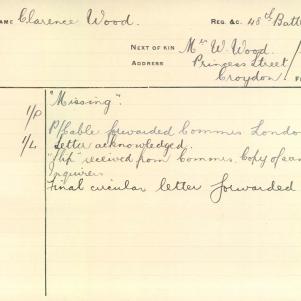 NAME Clarence Wood. REG. &C. 48th Batt
NEXT OF KIN Mr W. Wood.
ADDRESS Princess Street
Croydon
1/P "Missing".
P/Cable forwarded Commrs London
1/L Letter acknowledged.
"Slip" received from Commrs. Copy of same
inquirers
Final circular letter forwarded